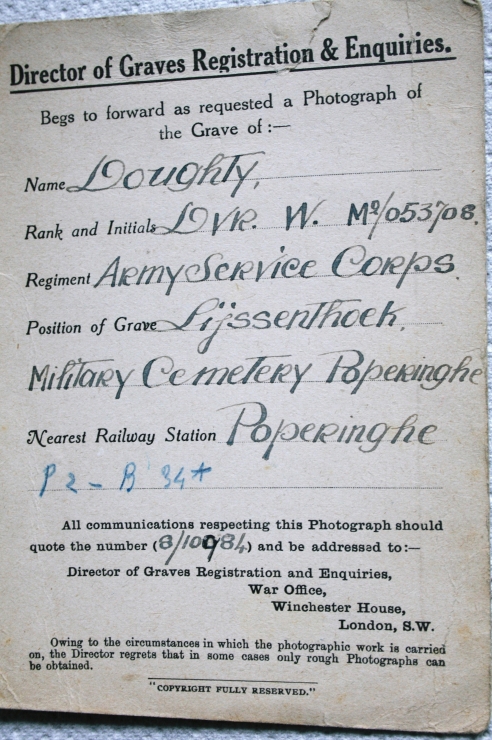 Director of Graves Registration & Enquiries.
Begs to forward as requested a Photograph of
the Grave of :—
Name Doughty,
Rank and Initials DVR. W. M2/053708.
Regiment Army Service Corps.
Position of Grave Lijssenthoek,
Military Cemetery Poperinghe
Nearest Railway Station Poperinghe
P 2 - B 34*
All communications respecting this Photograph should
quote the number (8/10984) and be addressed to:—
Director of Graves Registration and Enquiries,
War Office,
Winchester House,
London, S.W.
Owing to the circumstances in which the photographic work is carried
on, the Director regrets that in some cases only rough Photographs can
be obtained.
"COPYRIGHT FULLY RESERVED."